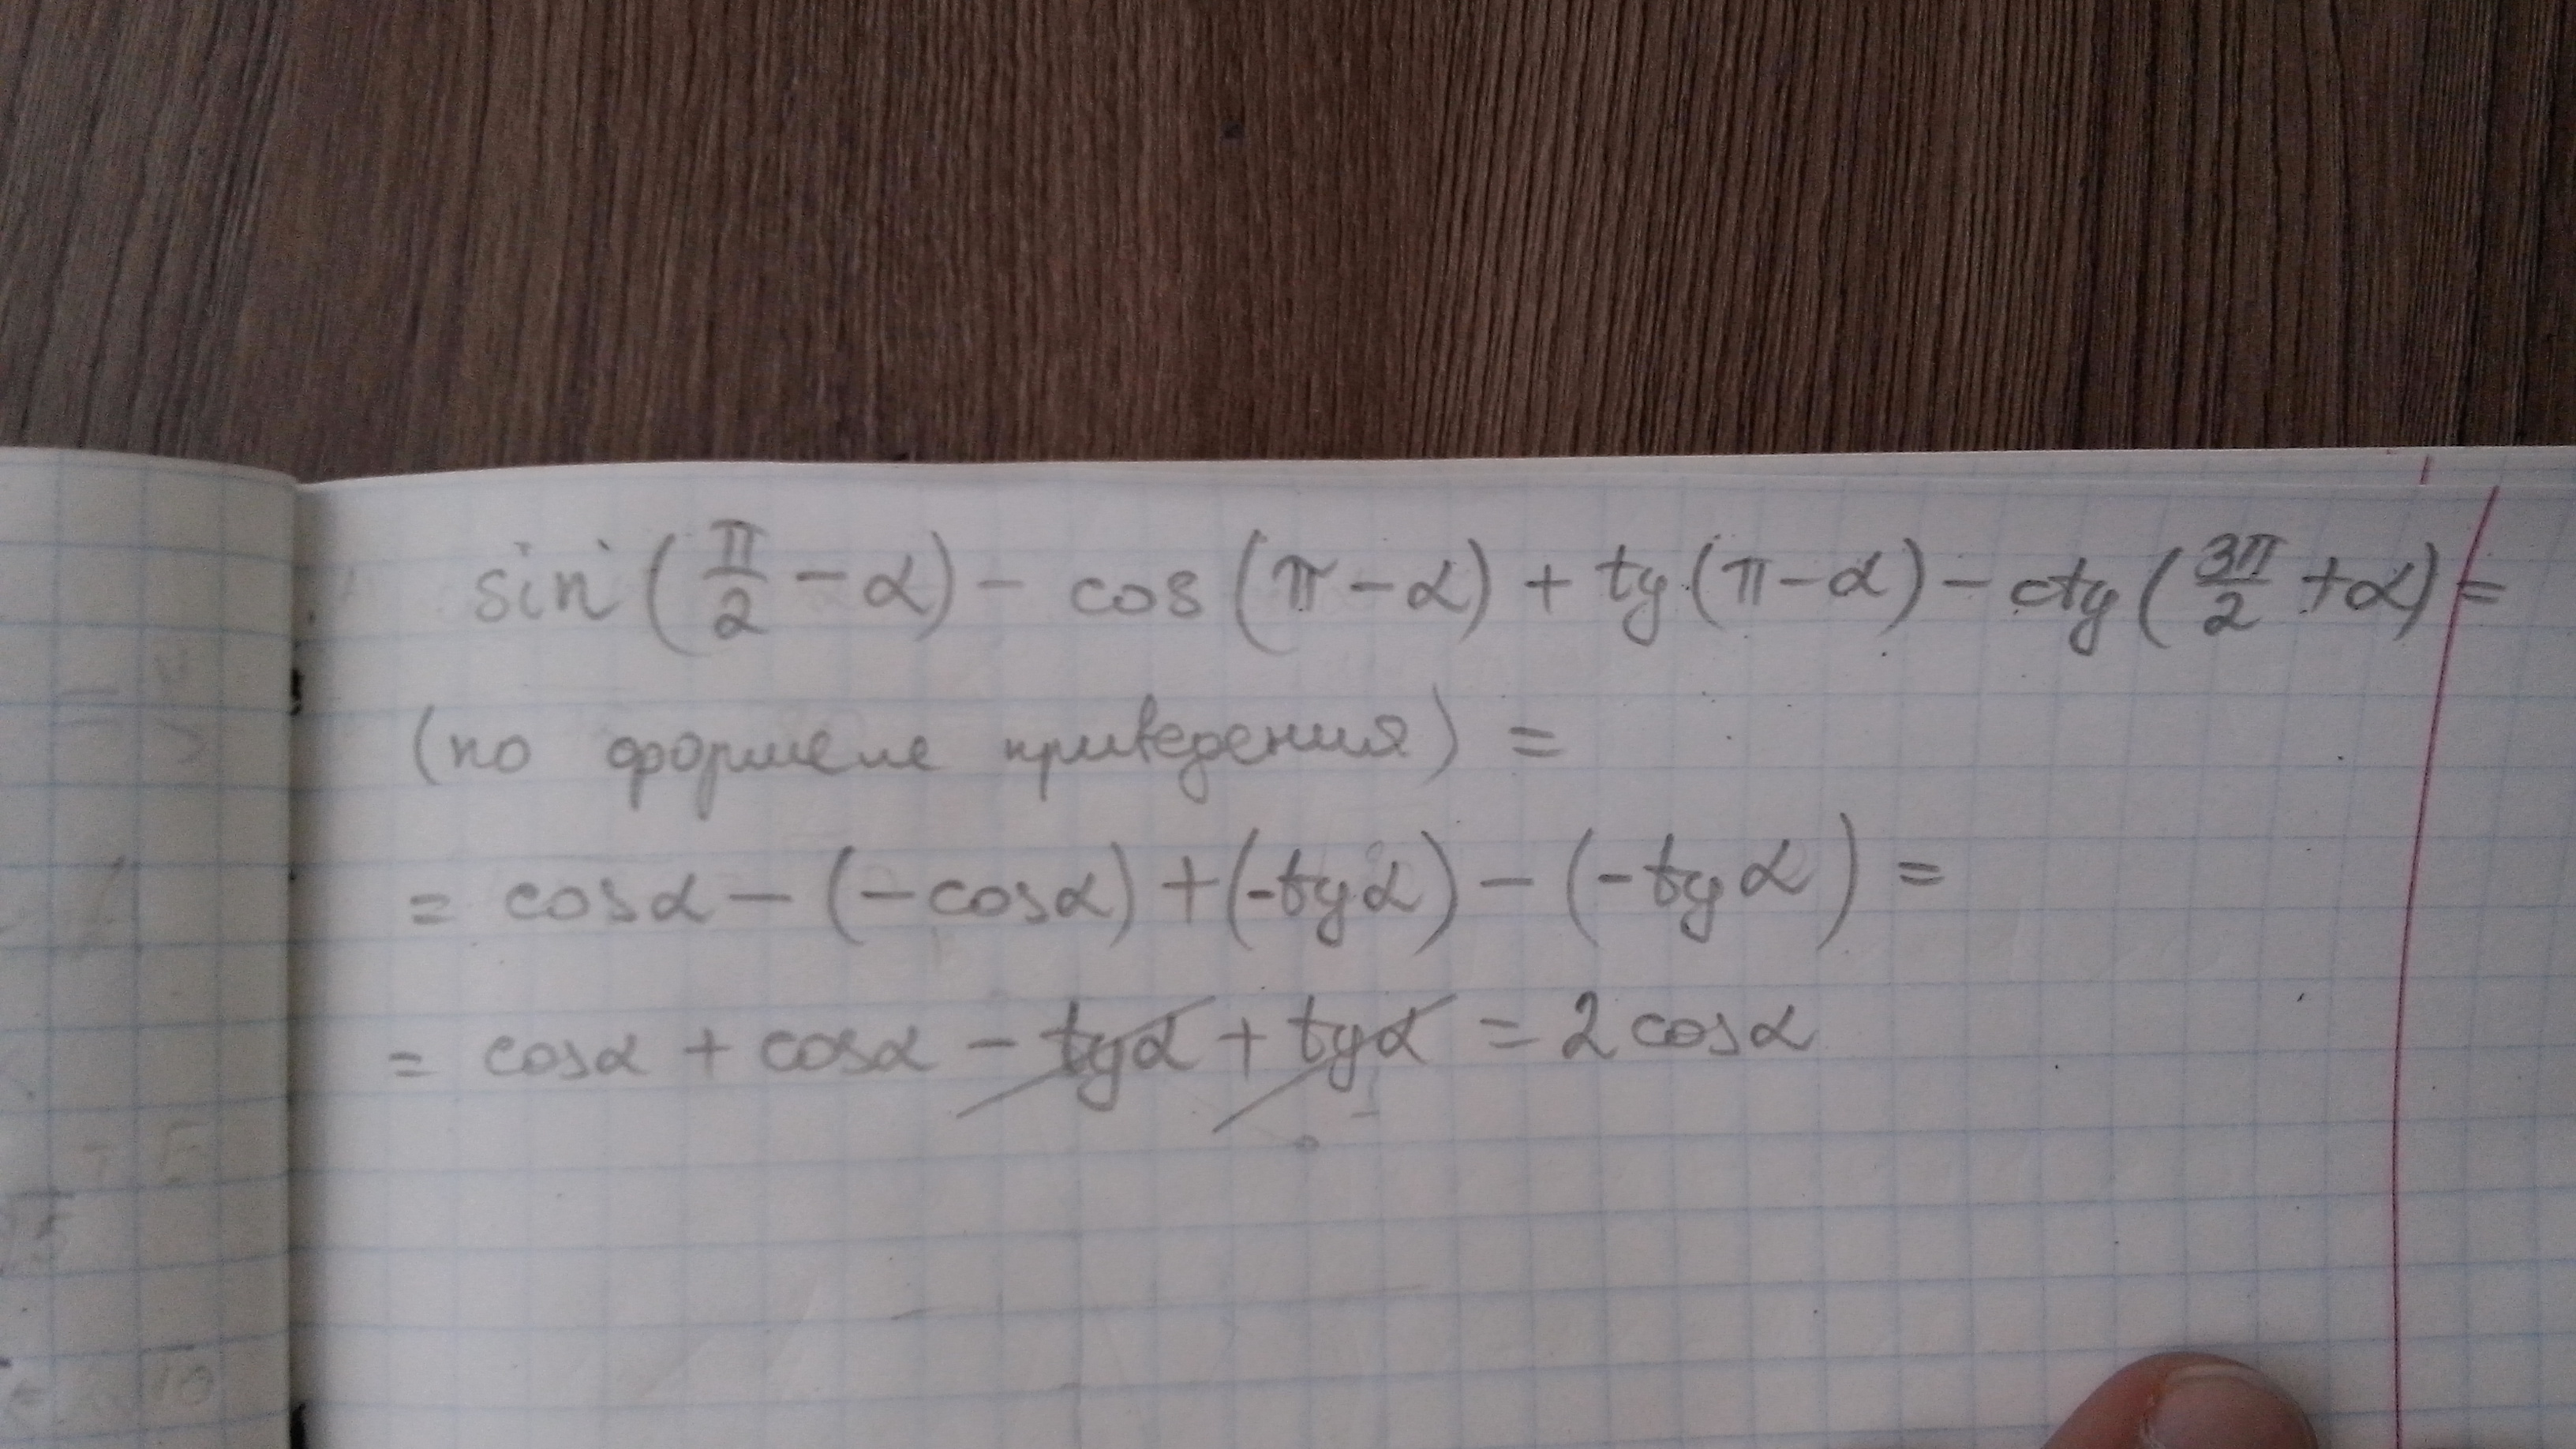 sin(π/2 - α) - cos(π - α) + tg(π - α) - ctg(3π/2 + α) =
(по формуле приведения) =
= cosα - (-cosα) + (-tgα) - (-tgα) =
= cosα + cosα - tgα + tgα = 2cosα